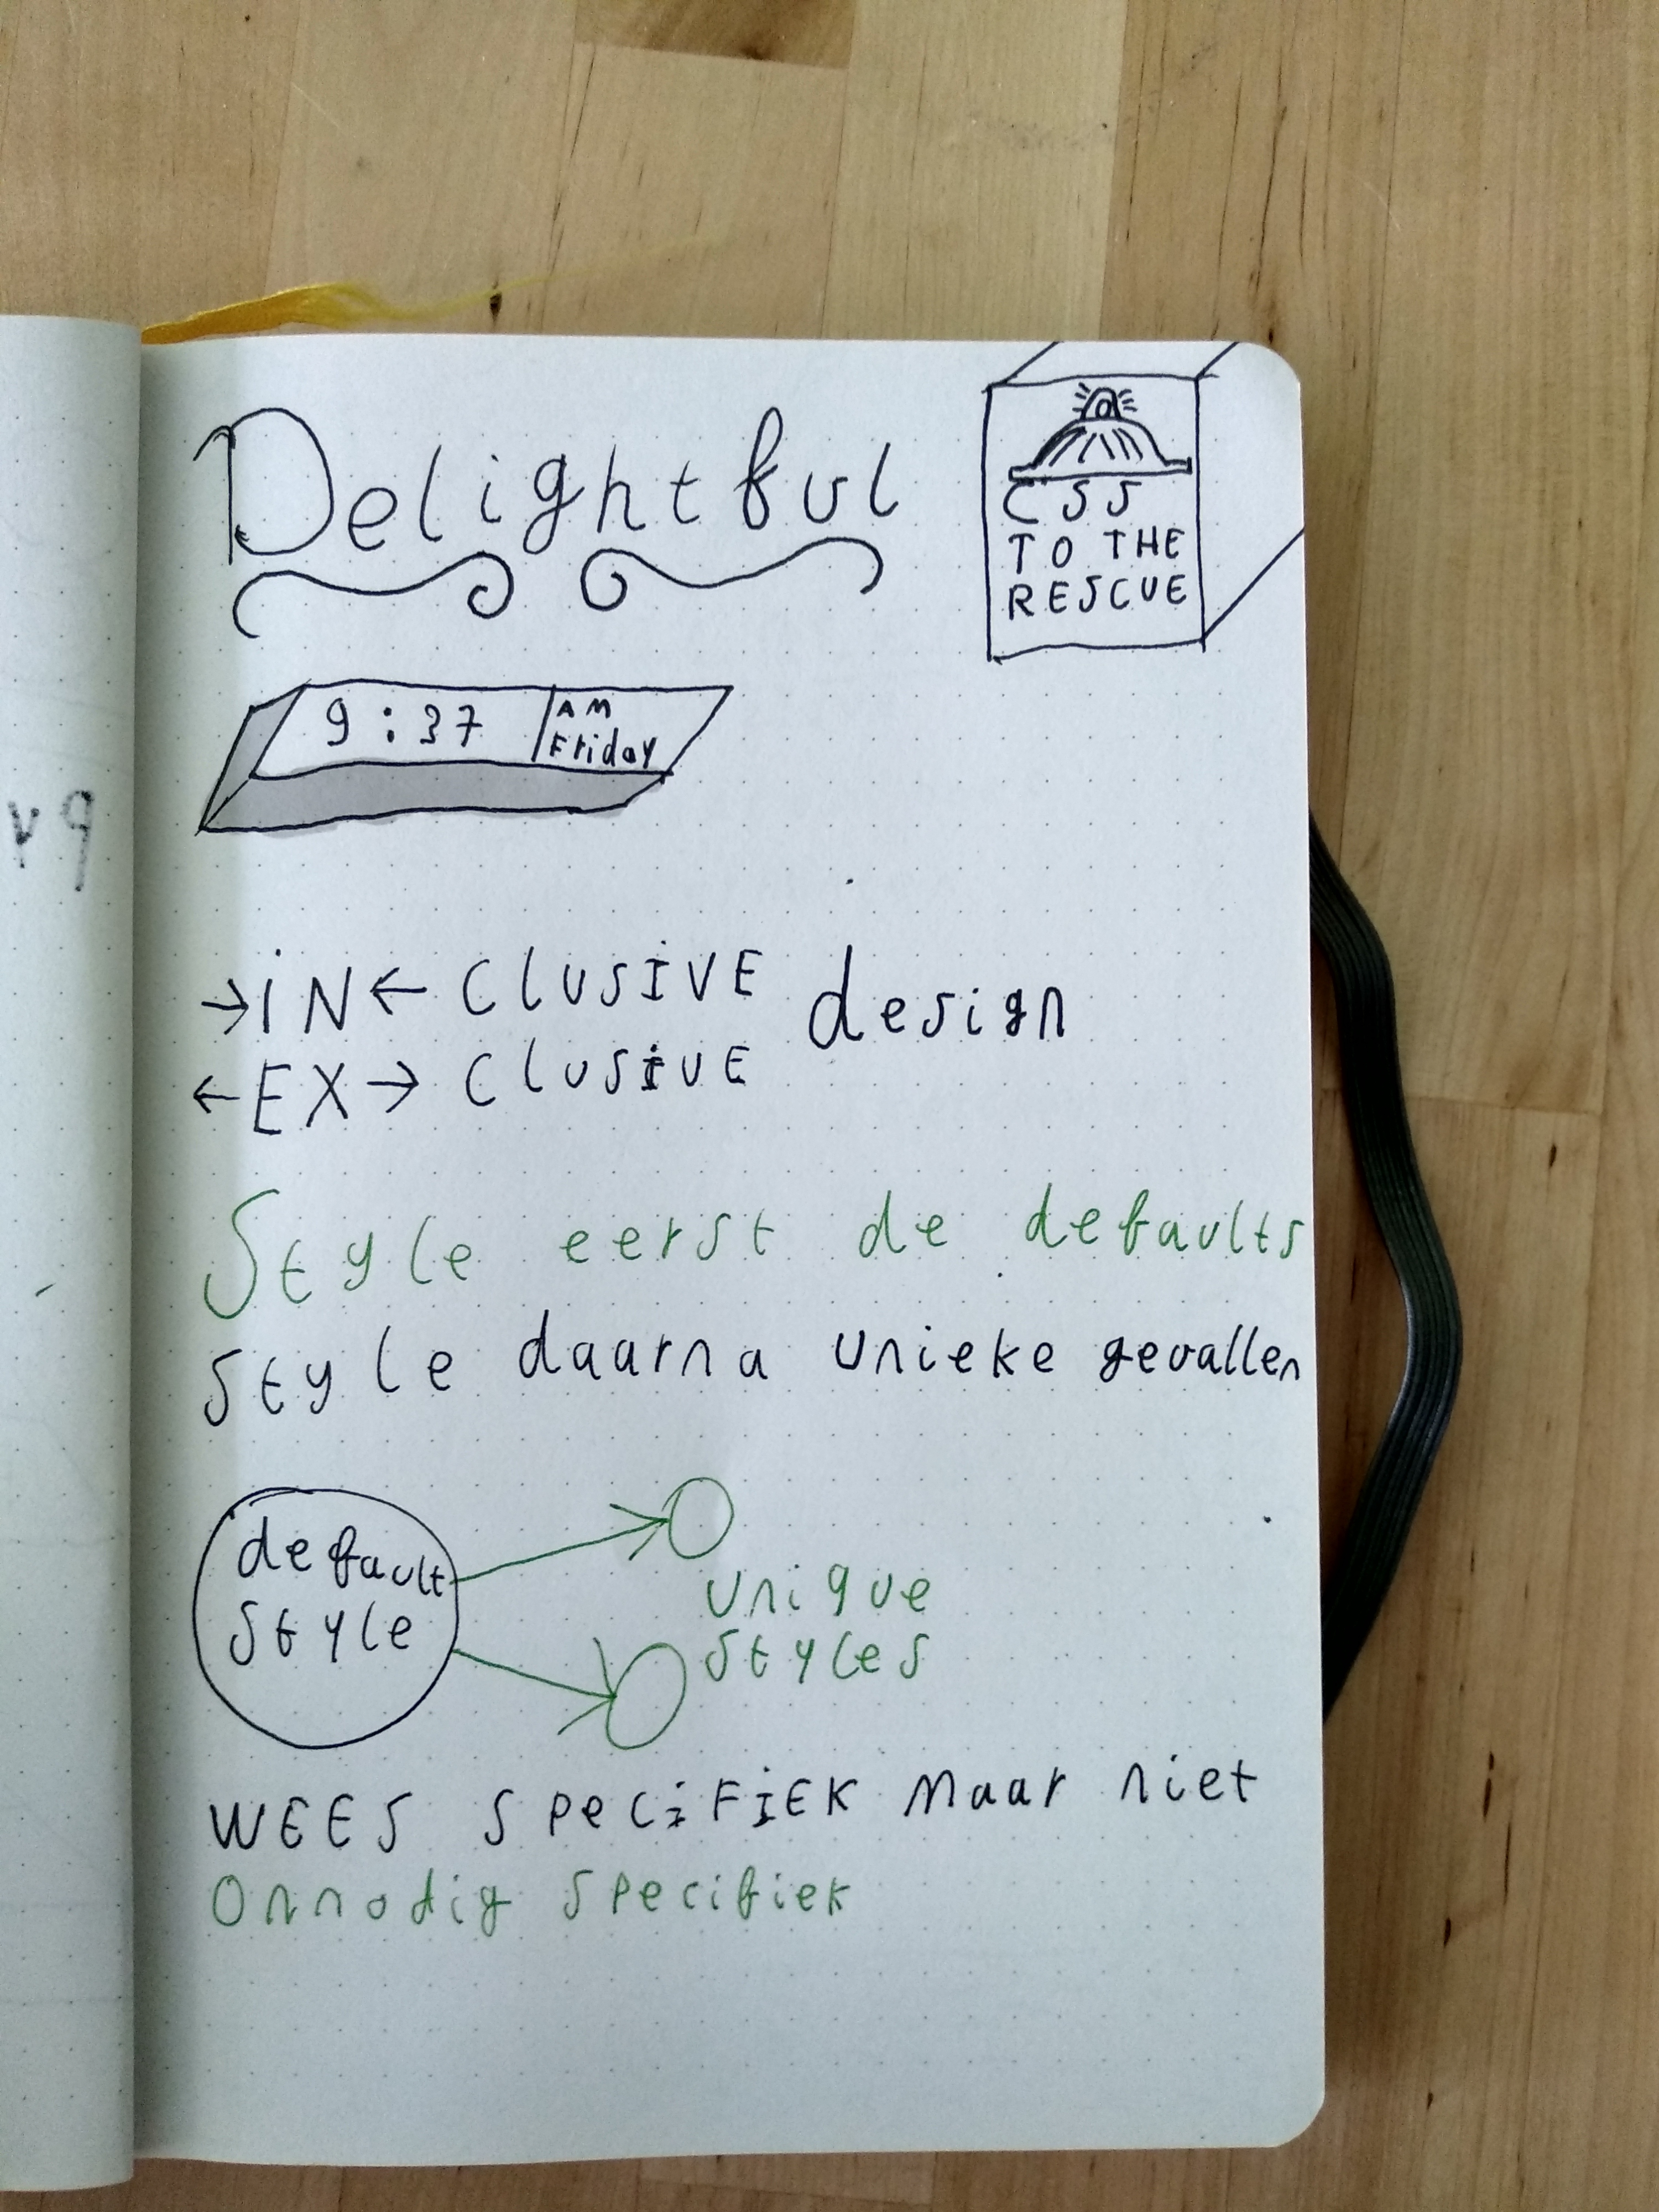 Delightful
CSS
TO THE
RESCUE
9:37
AM
Friday
→iN← ClUSIVE design
←EX→ ClUSiVE
Style eerst de defaults
Style daarna unieke gevallen
default
style
unique
styles
WEES SPeCiFiEK Maar niet
Onnodig specifiek